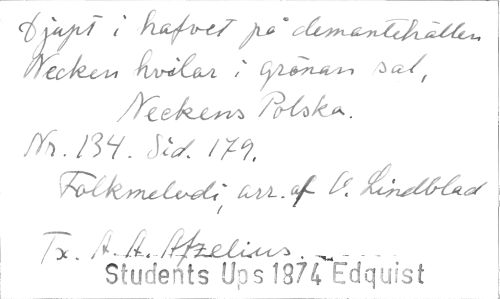 Djupt i hafvet på demantehällen
Necken hvilar i grönan sal,
Neckens Polska.
Nr. 134. Sid. 179.
Folkmelodi, arr. af O. Lindblad
Tx. A. A. Afzelius.
Students Ups 1874 Edquist